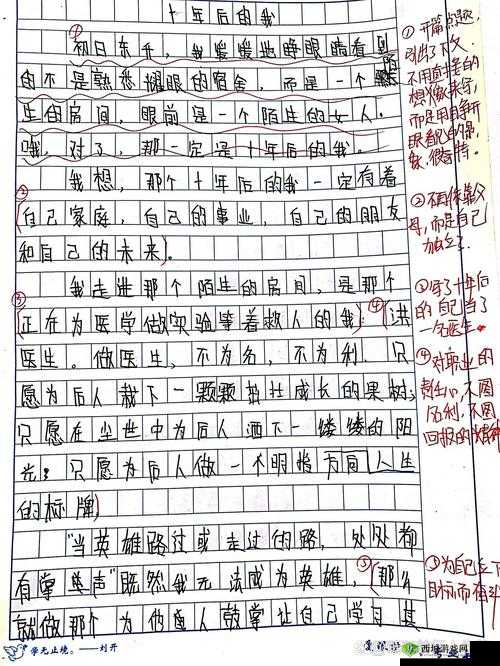 十年后的我
①
初日东升，我缓缓地睁眼睛看到
的不是熟悉耀眼的宿舍，而是一个陌
生的房间，眼前是一个陌生的女人。
哦，对了，那一定是十年后的我。
我想，那个十年后的我一定有着
②
(自己家庭，自己的事业，自己的朋友
和自己的未来)。
我走进那个陌生的房间，是那个
③
(正在为医学做实验等着救人的我)④(
医生。做医生，不为名，不为利。只
愿为后人栽下一颗颗茁壮成长的果树；
只愿在尘世中为后人洒下一缕缕的阳
光；只愿为后人做一个明指方向人生
的标牌)
"当英雄路过或走过的路，处处都
有掌声"既然我无法成为英雄，⑤(那么
就做那个为他人鼓掌让自己学习其
①开篇点题，
引出了下文
不用直接的
而是用自己睁开
眼看
很奇特。
②不再依靠父
母，而是自己
③写了十年后
的自己当了
一名医生
④对职业的
不图
名利，不图
回报的精神
⑤为自己立下
目标而奋斗
学无止境。——刘开
西城游戏网